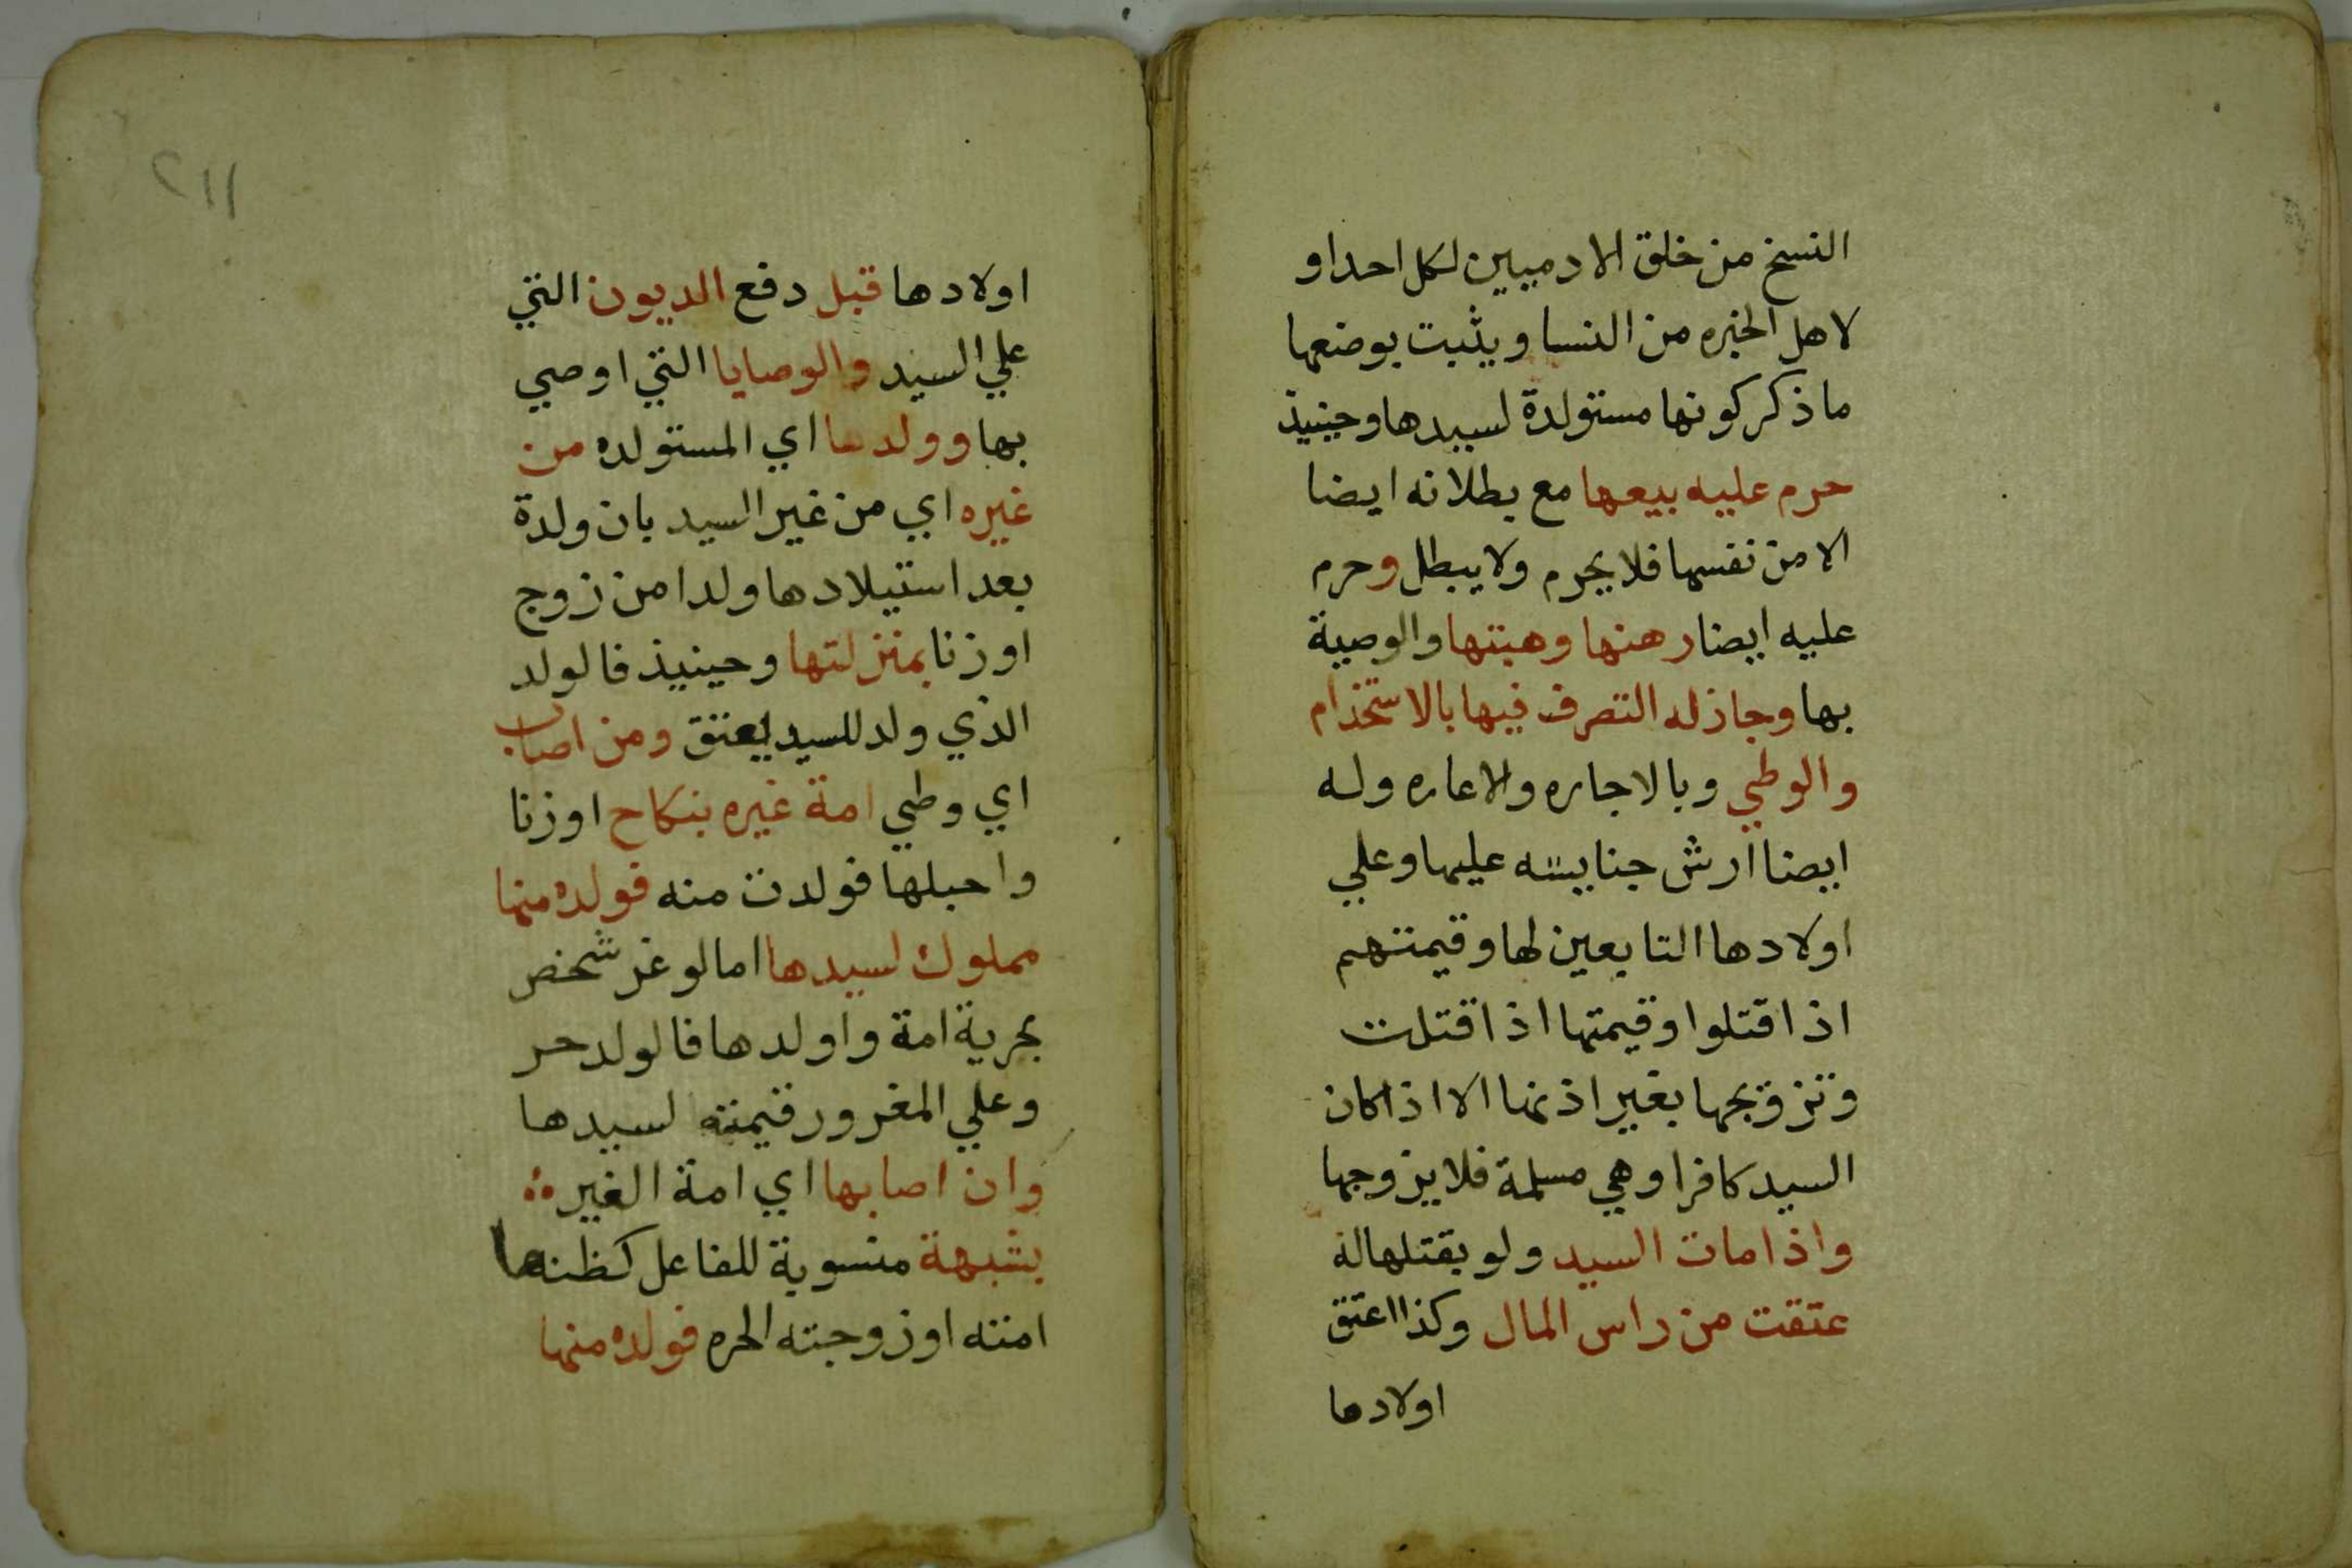 النسخ من خلق الادميين لكل احد او
لاهل الخبره من النسا ويثبت بوضعها
ما ذكر كونها مستولدة لسيدها وحينيذ
حرم عليه بيعها مع بطلانه ايضا
الا من نفسها فلا يحرم ولا يبطل وحرم
عليه ايضا رهنها وهبتها والوصية
بها وجاز له التصرف فيها بالاستخذام
والوطي وبالاجاره والاعاره وله
ايضا ارش جنايته عليها وعلي
اولادها التابعين لها وقيمتهم
اذا قتلوا وقيمتها اذا قتلت
وتزويجها بغير اذنها الا اذا كان
السيد كافرا وهي مسلمة فلا يزوجها
واذا مات السيد ولو بقتلها له
عتقت من راس المال وكذا اعتق
اولادها
٢١١
اولادها قبل دفع الديون التي
علي السيد والوصايا التي اوصي
بها وولدها اي المستولده من
غيره اي من غير السيد بان ولدة
بعد استيلادها ولدا من زوج
او زنا بمنزلتها وحينيذ فالولد
الذي ولد للسيد يعتق ومن اصاب
اي وطي امة غيره بنكاح او زنا
واحبلها فولدت منه فولده منها
مملوك لسيدها اما لو غر شخص
بحرية امة واولدها فالولد حر
وعلي المغرور قيمته لسيدها
وان اصابها اي امة الغير
بشبهة منسوبة للفاعل كظنها
امته او زوجته الحره فولده منها